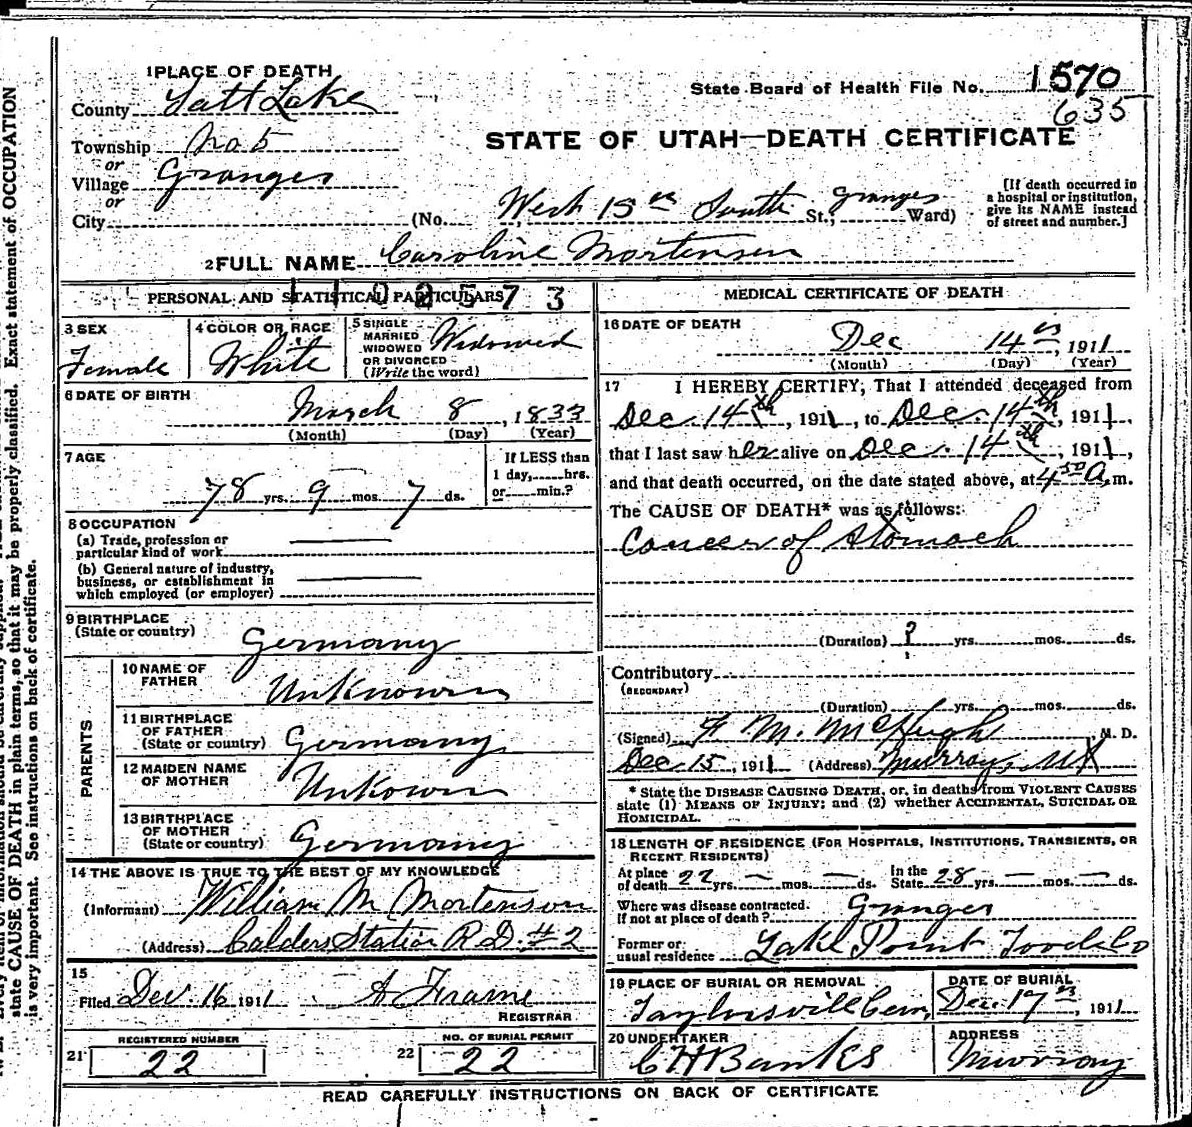 1 PLACE OF DEATH
County Salt Lake
State Board of Health File No. 1570
635
Township No 5
or
Village Granger
or
City
STATE OF UTAH—DEATH CERTIFICATE
(No. West 15th South St.; Granger Ward)
[If death occurred in a hospital or institution, give its NAME instead of street and number.]
2 FULL NAME Caroline Mortensen
PERSONAL AND STATISTICAL PARTICULARS
1102573
3 SEX
Female
4 COLOR OR RACE
White
5 SINGLE
MARRIED
WIDOWED
OR DIVORCED
(Write the word)
Widowed
6 DATE OF BIRTH
March 8, 1833
(Month) (Day) (Year)
7 AGE
78 yrs. 9 mos. 7 ds.
If LESS than
1 day, hrs.
or min.?
8 OCCUPATION
(a) Trade, profession or
particular kind of work
(b) General nature of industry,
business, or establishment in
which employed (or employer)
9 BIRTHPLACE
(State or country)
Germany
PARENTS
10 NAME OF
FATHER
Unknown
11 BIRTHPLACE
OF FATHER
(State or country) Germany
12 MAIDEN NAME
OF MOTHER
Unkown
13 BIRTHPLACE
OF MOTHER
(State or country) Germany
14 THE ABOVE IS TRUE TO THE BEST OF MY KNOWLEDGE
(Informant) William M Mortenson
(Address) Calders Station R D. # 2
15
Filed Dec. 16 1911 A Frame
REGISTRAR
REGISTERED NUMBER
21 22
NO. OF BURIAL PERMIT
22 22
MEDICAL CERTIFICATE OF DEATH
16 DATE OF DEATH
Dec 14th, 1911
(Month) (Day) (Year)
17 I HEREBY CERTIFY, That I attended deceased from
Dec. 14th, 1911, to Dec. 14th, 1911,
that I last saw her alive on Dec. 14th, 1911,
and that death occurred, on the date stated above, at 4 30 A. m.
The CAUSE OF DEATH* was as follows:
Cancer of Stomach
(Duration) ? yrs. mos. ds.
Contributory
(SECONDARY)
(Duration) yrs. mos. ds.
(Signed) M. McHugh M. D.
Dec 15, 1911 (Address) Murray, Ut
* State the DISEASE CAUSING DEATH, or, in deaths from VIOLENT CAUSES
state (1) MEANS OF INJURY; and (2) whether ACCIDENTAL, SUICIDAL OR
HOMICIDAL.
18 LENGTH OF RESIDENCE (FOR HOSPITALS, INSTITUTIONS, TRANSIENTS, OR
RECENT RESIDENTS)
At place
of death 22 yrs. — mos. — ds.
In the
State 28 yrs. — mos. — ds.
Where was disease contracted.
If not at place of death? Granger
Former or
usual residence Lake Point Tooele Co
19 PLACE OF BURIAL OR REMOVAL
Taylorsvill Cem,
DATE OF BURIAL
Dec. 17th, 1911
20 UNDERTAKER
C H Banks
ADDRESS
Murray
READ CAREFULLY INSTRUCTIONS ON BACK OF CERTIFICATE
state CAUSE OF DEATH in plain terms, so that it may be properly classified. Exact statement of OCCUPATION
is very important. See instructions on back of certificate.